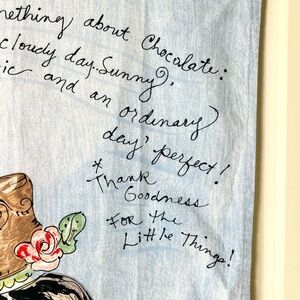 mething about Chocolate:
cloudy day. Sunny,
ic and an ordinary
day, perfect!
* Thank
Goodness
For the
Little Things!